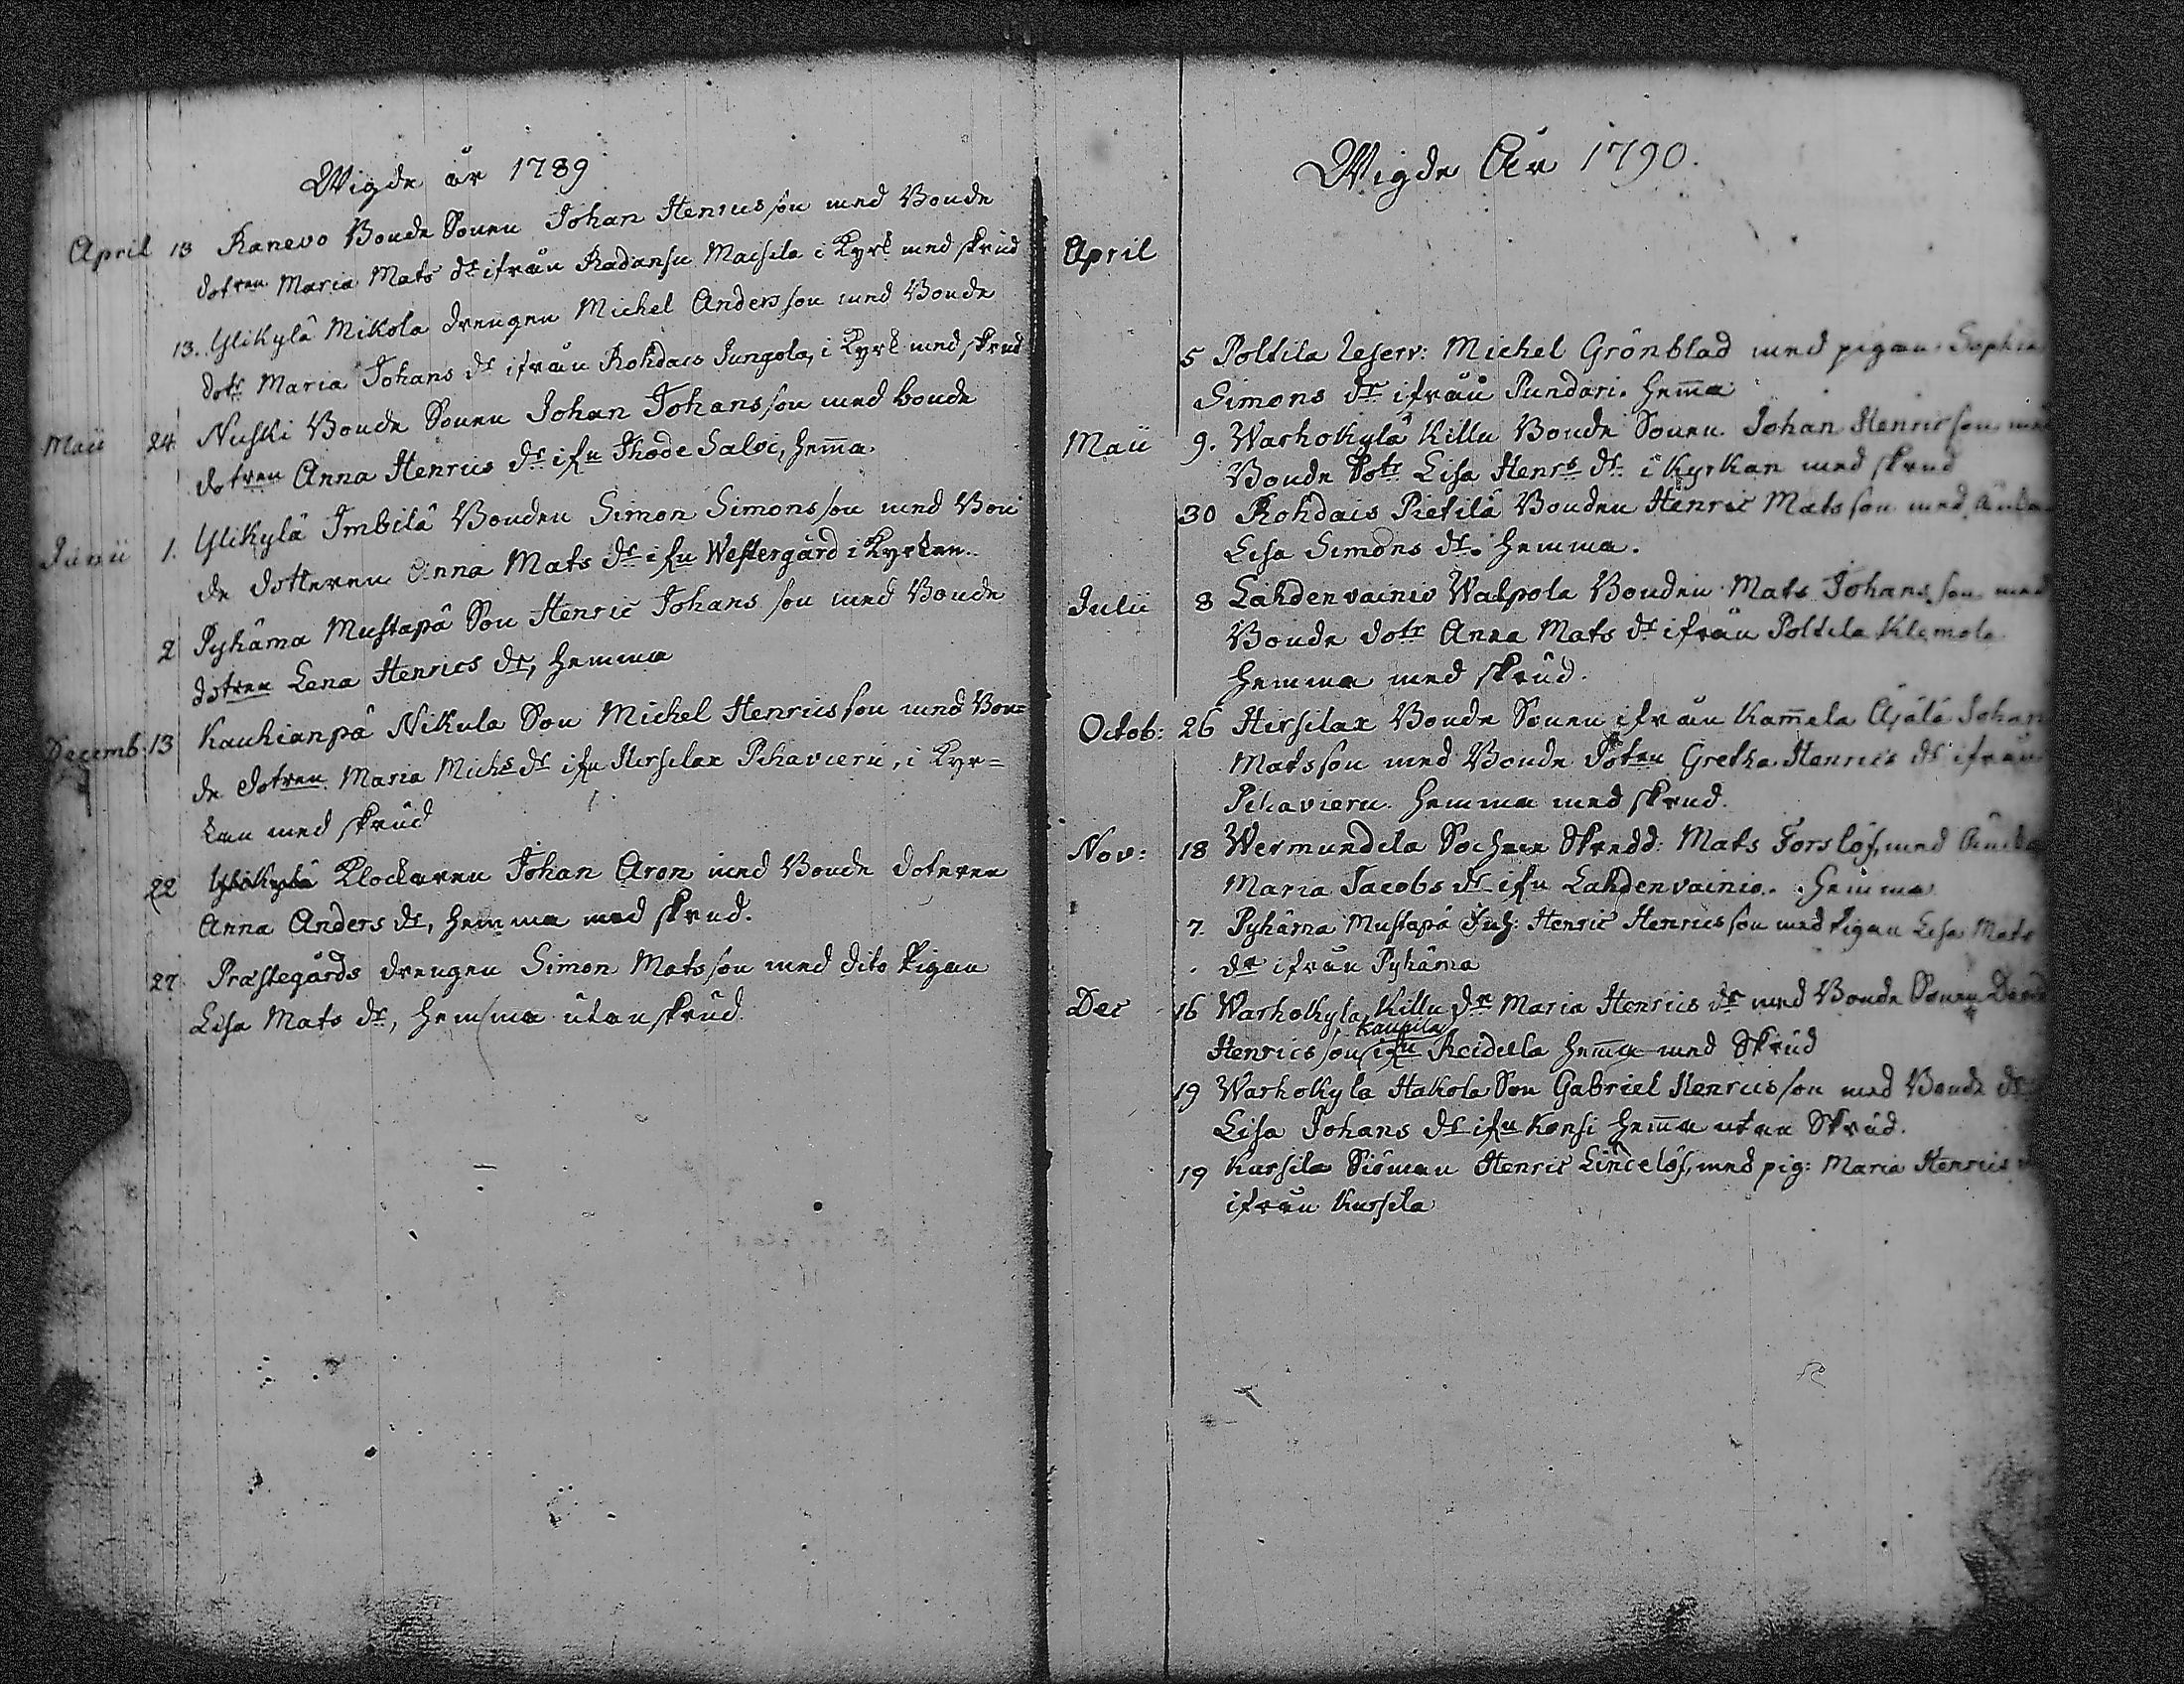 Wigde år 1789
April 13 Ranevo Bonde Sonen Johan Henricsson med Bonde
dotren Maria Mats dr ifrån Radansu Maisila i Kyrk med skrud
13. Ylikylä Mikola drengen Michel Andersson med Bonde
dotr Maria Johans dr ifrån Rohdais Jungola, i Kyrk med skrud
Maii 24 Nuhki Bonde Sonen Johan Johansson med bonde
dotren Anna Henrics dr ifn Thode Saloi, hemma.
Junii 1. Ylikylä Imbilä Bonden Simon Simonsson med Bon
de dotteren Anna Mats dr ifn Westergård i Kyrkan.
2 Pyhäma Mustapä Son Henric Johansson med Bonde
dotren Lena Henrics dr, hemma
Decemb: 13 Kauhianpä Nikula Son Michel Henricsson med Bon=
de dotren Maria Michs dr ifn Hirsilax Pihavieru, i Kyr=
kan med skrud
22 Ylikylä Klockaren Johan Aron med Bonde doteren
Anna Anders dr, hemma med skrud.
27 Præstegårds drengen Simon Matsson med dito Pigan
Lisa Mats dr, hemma utan skrud
Wigde År 1790.
April
5 Poltila Reserv: Michel Grönblad med pigan Sophia
Simons dr ifrån Pundari. hemma
Maii 9. Warhokylä Killu Bonde Sonen Johan Henricson med
Bonde Dotr Lisa Henrs dr i Kyrkan med skrud
30 Rohdais Pietilä Bonden Henric Matsson med Änkan
Lisa Simons dr. hemma.
Julii 8 Lahdenvainio Walpola Bonden Mats Johansson med
Bonde dotr Anna Mats dr ifrån Poltila Klemola
hemma med skrud.
Octob: 26 Hirsilax Bonde Sonen ifrån Kamela Äjälä Johan
Matsson med Bonde Dotren Gretha Henrics dr ifrån
Pihavieru. hemma med skrud.
Nov: 18 Wermundila Sochne Skredd: Mats Forslöf, med Änka
Maria Jacobs dr ifn Lahdenvainio. hemma
7. Pyhäma Mustapä Inh: Henric Henricsson med Pigan Lisa Mats
dr ifrån Pyhäma
Dec 16 Warhokyla Killu dr Maria Henrics dr med Bonde Sonen David
Kaupila
Henricsson ifn Reidilla hemma med Skrud
19 Warhokyla Hakola Son Gabriel Henricsson med Bonde dr
Lisa Johans dr ifn Konsi hemma utan Skrud.
19 Kursila Siöman Henric Lindelöf, med pig: Maria Henrics
ifrån Kursila